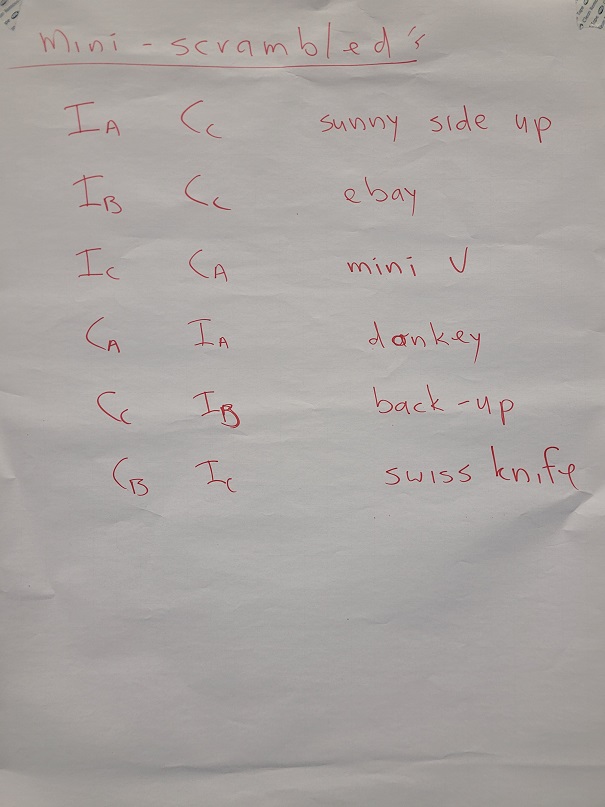 Mini - scrambled's
IA CC sunny side up
IB CC ebay
IC CA mini V
CA IA dankey
CC IB back-up
CB IC swiss knife